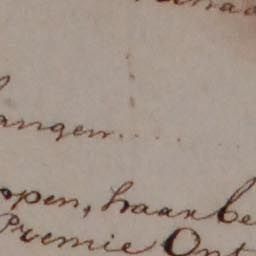 angen.....
ppen, haar be
Premie Ont